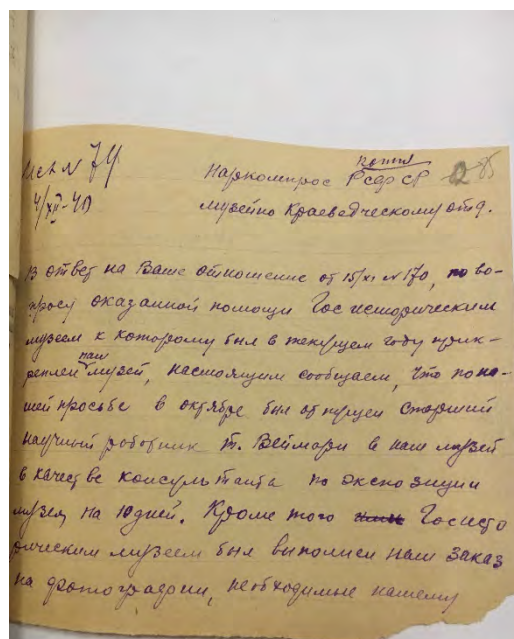 Исх N 74
4/XII-40
копия
Наркомпрос РСФСР
музейно Краеведческому отд.
В ответ на Ваше отношение от 15/XI N 170, по во-
просу оказанной помощи Гос историческим
музеем к которому был в текущем году прик-
реплен наш музей, настоящим сообщаем, что по на-
шей просьбе в октябре был отпущен старший
научный работник т. Веймарн в наш музей
в качестве консультанта по экспозиции
музея, на 10 дней. Кроме того Госисто
рическим музеем был выполнен наш заказ
на фотографии, необходимые нашему